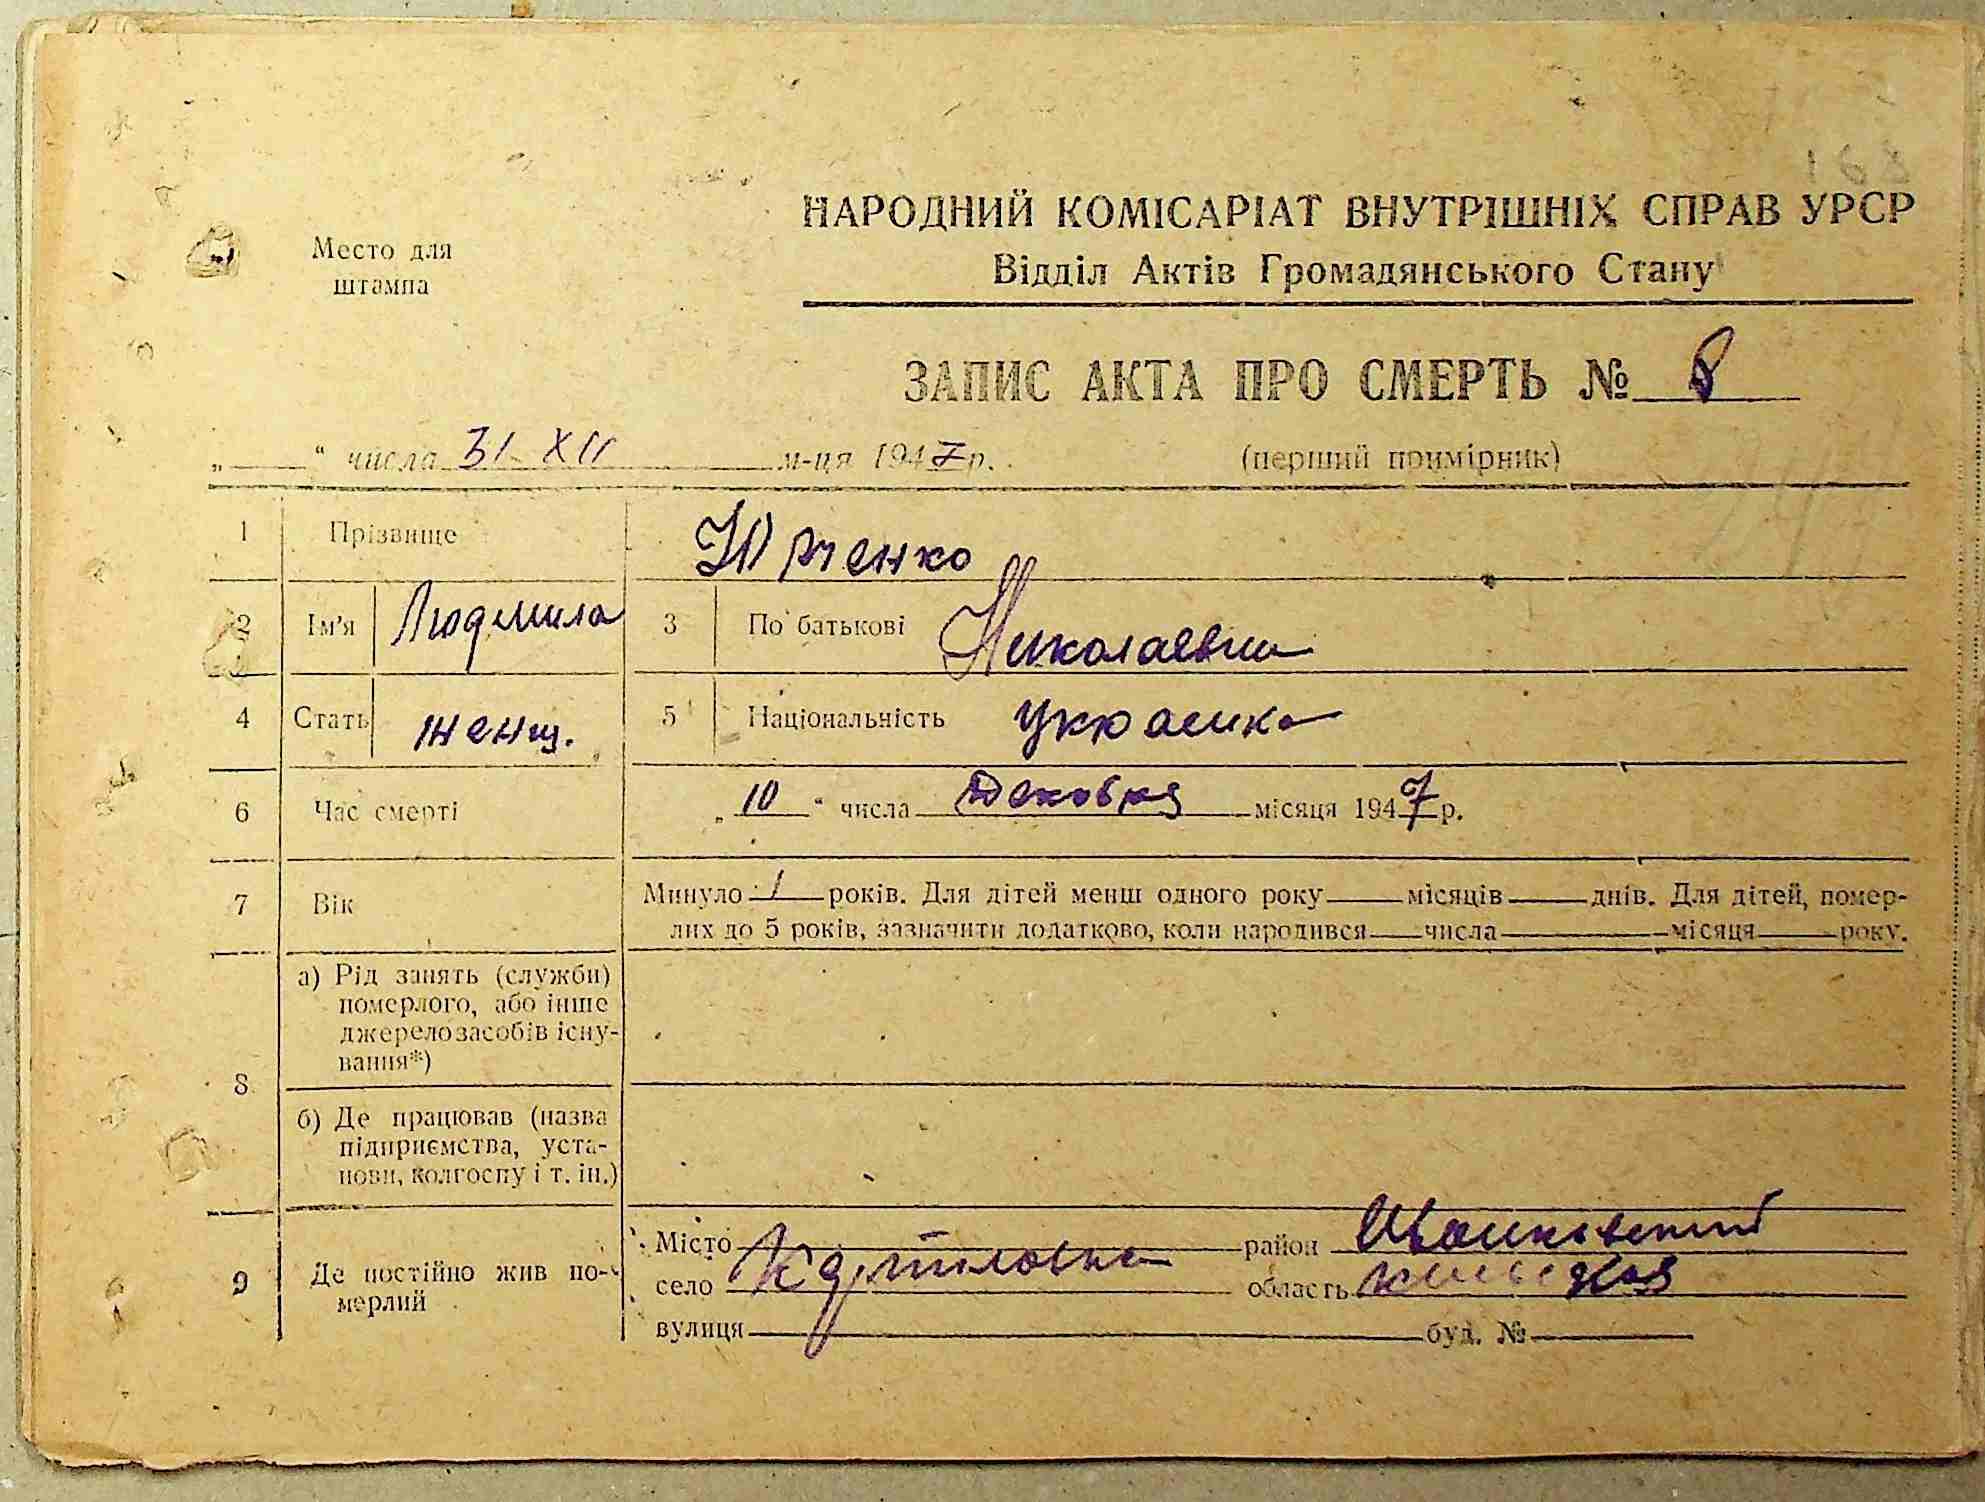 168
НАРОДНИЙ КОМІСАРІАТ ВНУТРІШНІХ СПРАВ УРСР
Відділ Актів Громадянського Стану
Место для
штампа
ЗАПИС АКТА ПРО СМЕРТЬ № 8
„ “ числа 31 XII м-ця 1947 р. (перший примірник)
1 Прізвище Юрченко
2 Ім'я Людмила 3 По батькові Николаевна
4 Стать женщ. 5 Національність украинка
6 Час смерті „10“ числа Декабря місяця 1947 р.
7 Вік Минуло 1 років. Для дітей менш одного року місяців днів. Для дітей, помер-
лих до 5 років, зазначити додатково, коли народився числа місяця року.
8 а) Рід занять (служби)
померлого, або інше
джерело засобів існу-
вання*)
б) Де працював (назва
підприємства, уста-
нови, колгоспу і т. ін.)
9 Де постійно жив по-
мерлий
Місто район Иванковский
село область Киевская
вулиця буд. №